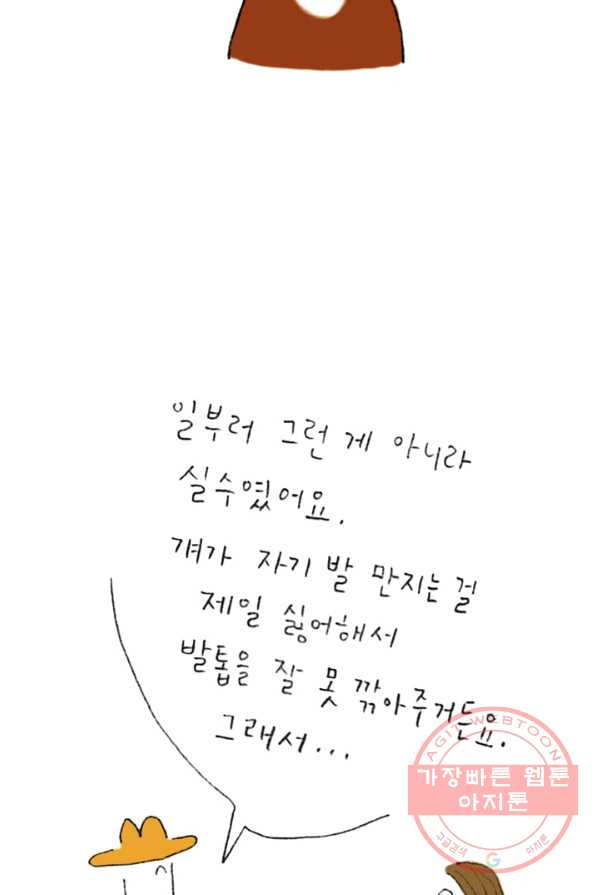 일부러 그런 게 아니라
실수였어요.
걔가 자기 발 만지는 걸
제일 싫어해서
발톱을 잘 못 깎아주거든요.
그래서...
AGIT WEBTOON
가장빠른 웹툰
아지툰
구글검색 G 아지툰